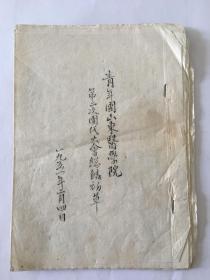 青年團山東醫學院
第二次團代大會總結初草
一九五一年二月四日